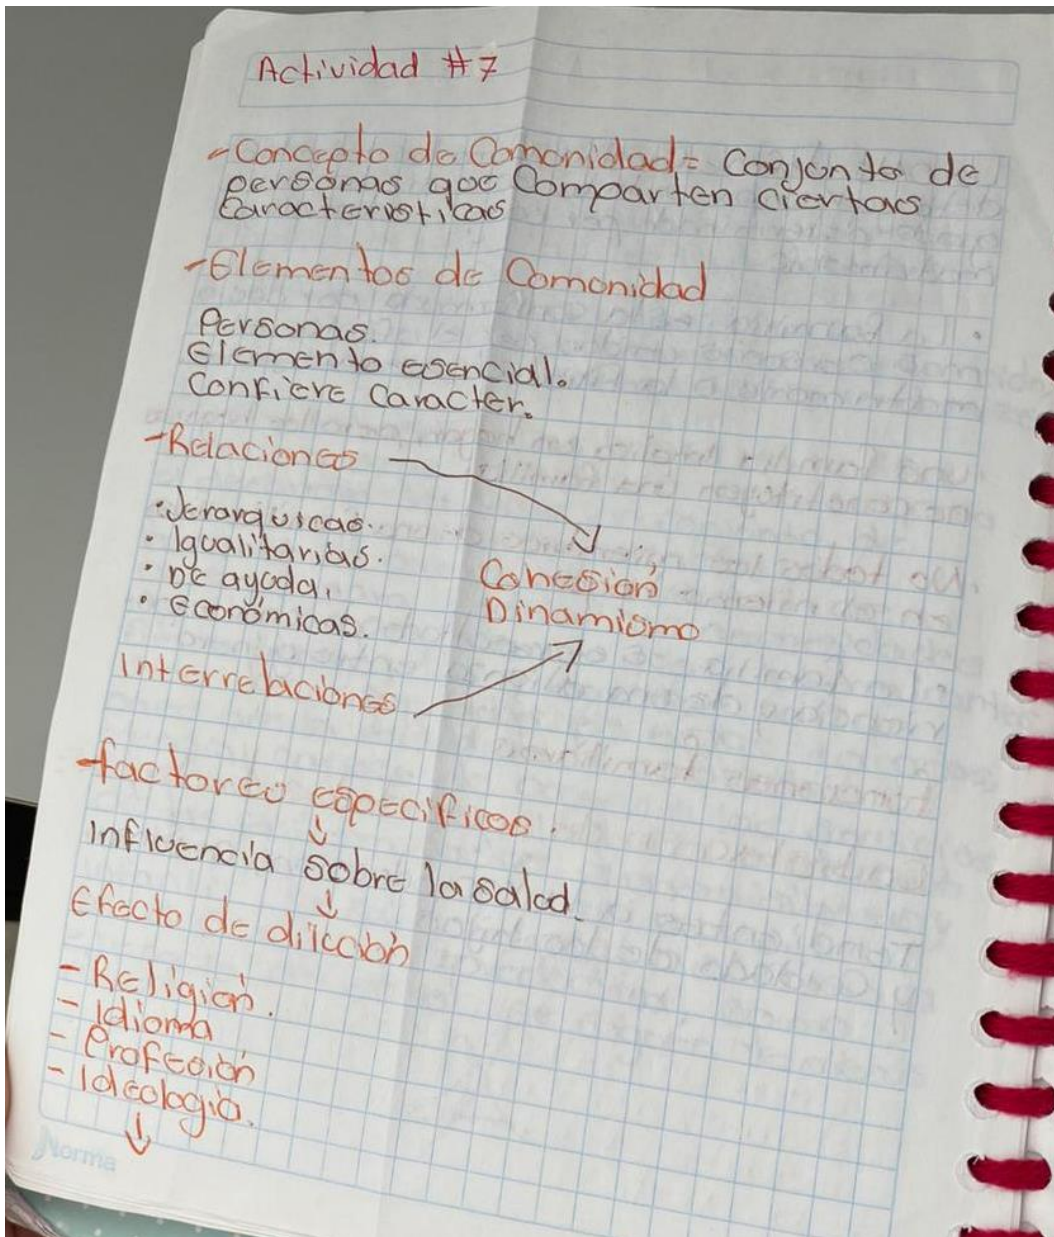 Actividad #7
- Concepto de Comonidad = Conjonto de
personas que Comparten ciertas
Caracteristicas
- Elementos de Comonidad
Personas.
Elemento esencial.
Confiere Caracter.
- Relaciones
• Jerarquicas.
• Igualitarias.
• De ayuda.
• Económicas.
Cohesión
Dinamismo
Interrelaciones
- factores especificos.
Influencia sobre la salud.
Efecto de dilección
- Religión.
- Idioma
- Profesión
- Ideologia.
Norma